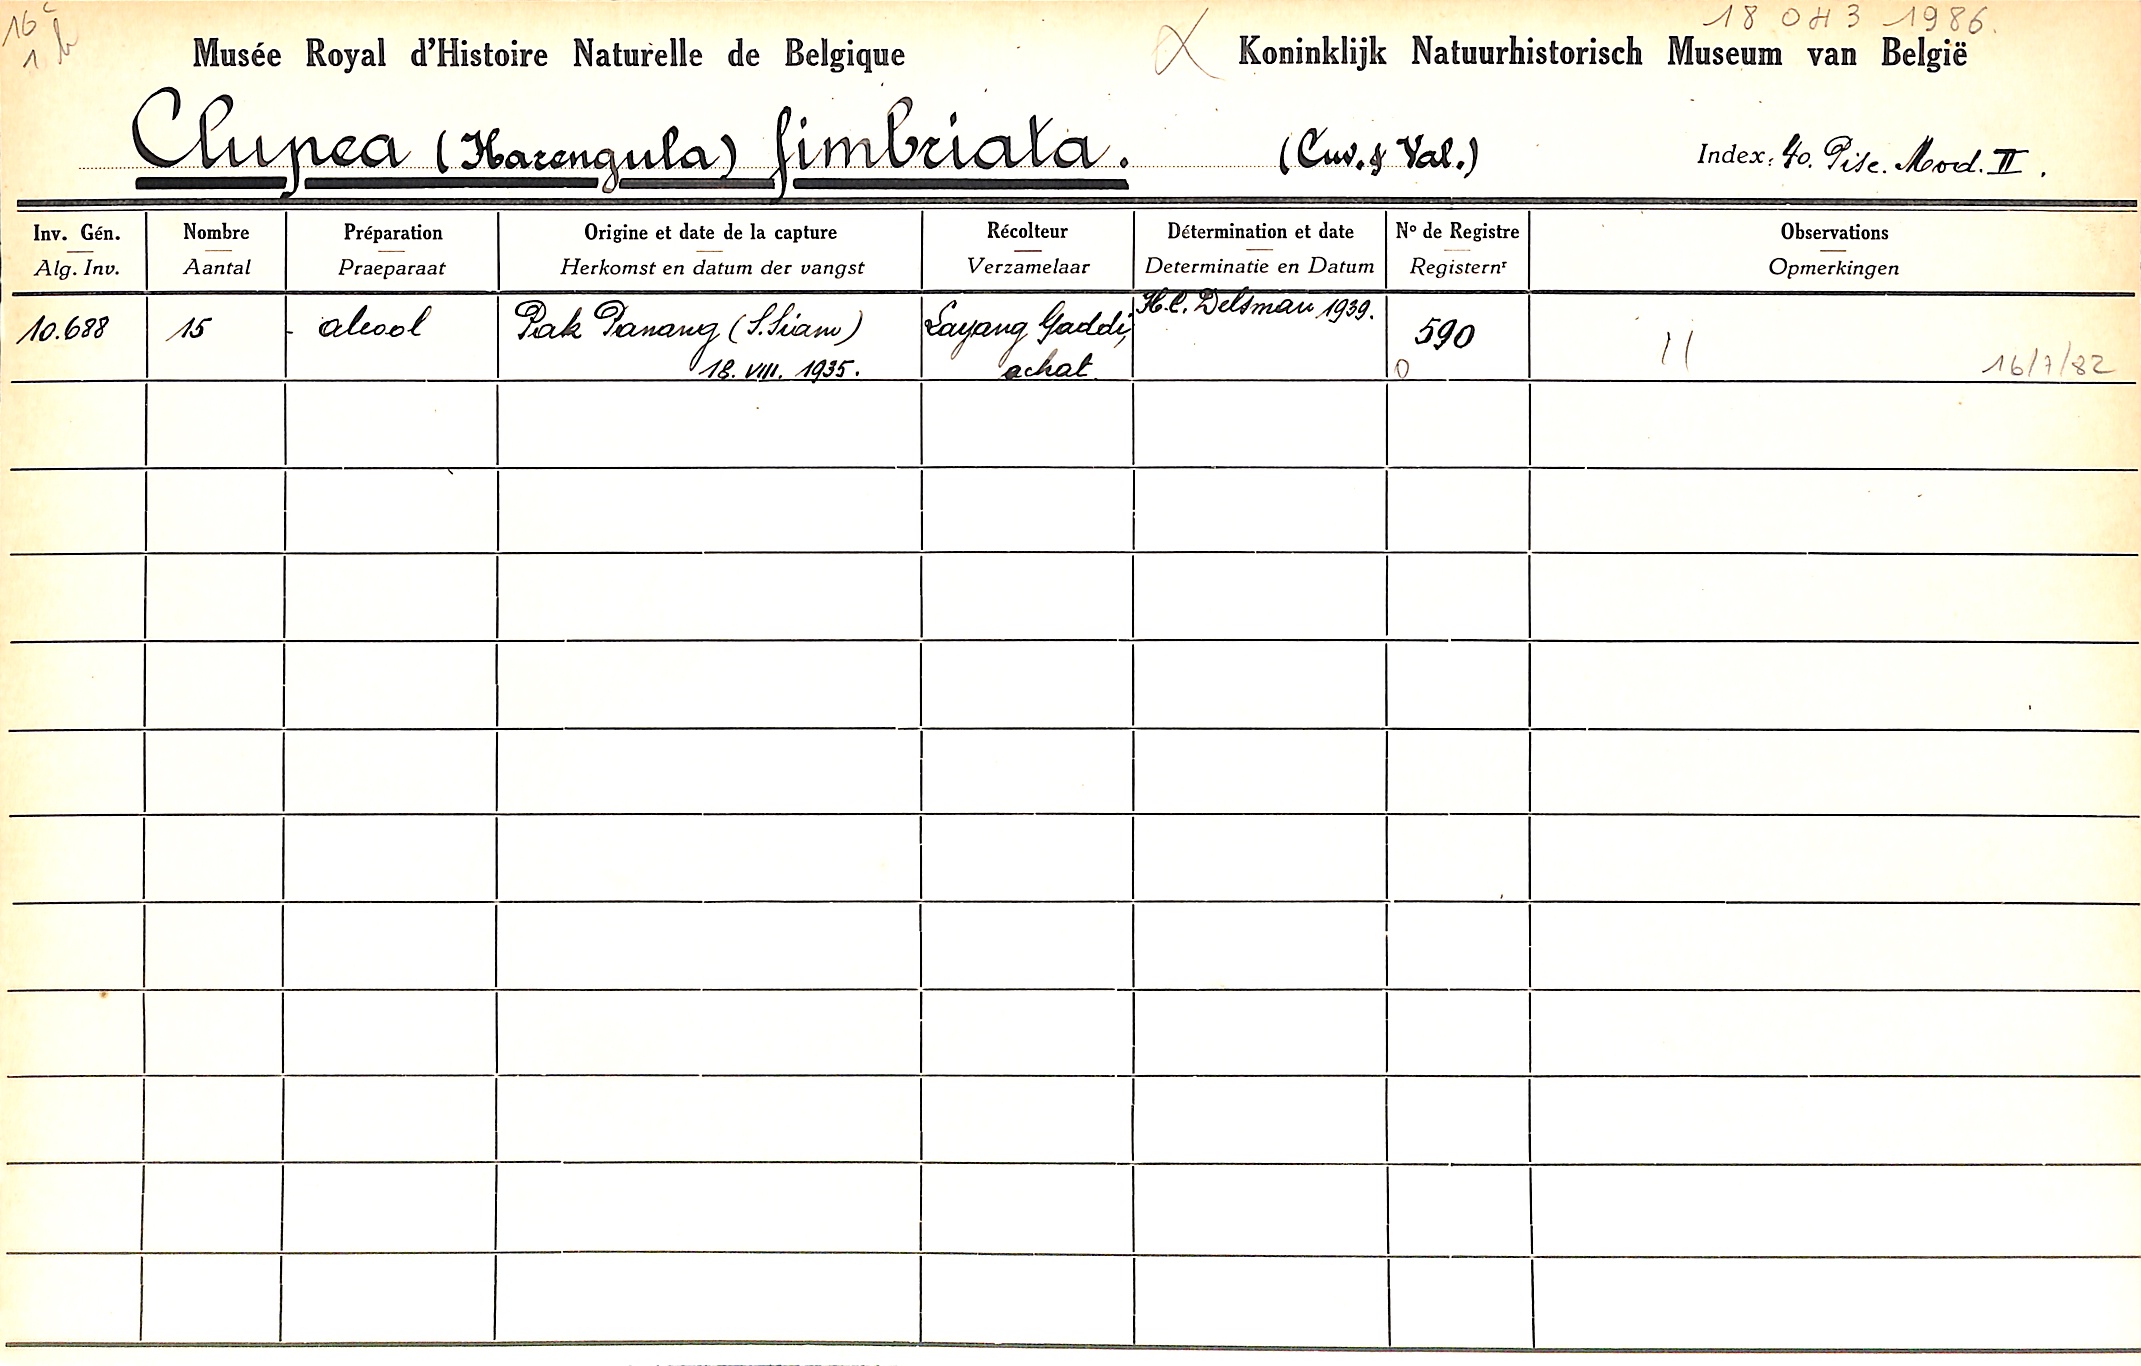 16
1
18 0H3 1986.
Musée Royal d'Histoire Naturelle de Belgique
Koninklijk Natuurhistorisch Museum van België
Clupea (Harengula) fimbriata.
(Cuv. & Val.)
Index: 40. Pisc. Mod. II.
Inv. Gén.
Alg. Inv.
Nombre
Aantal
Préparation
Praeparaat
Origine et date de la capture
Herkomst en datum der vangst
Récolteur
Verzamelaar
Détermination et date
Determinatie en Datum
Nº de Registre
Registernr
Observations
Opmerkingen
10.688
15
alcool
Pak Panang (S. Siam)
18. VIII. 1935.
Layang Gaddi,
achat
H.C. Delsman 1939.
590
0
16/7/82